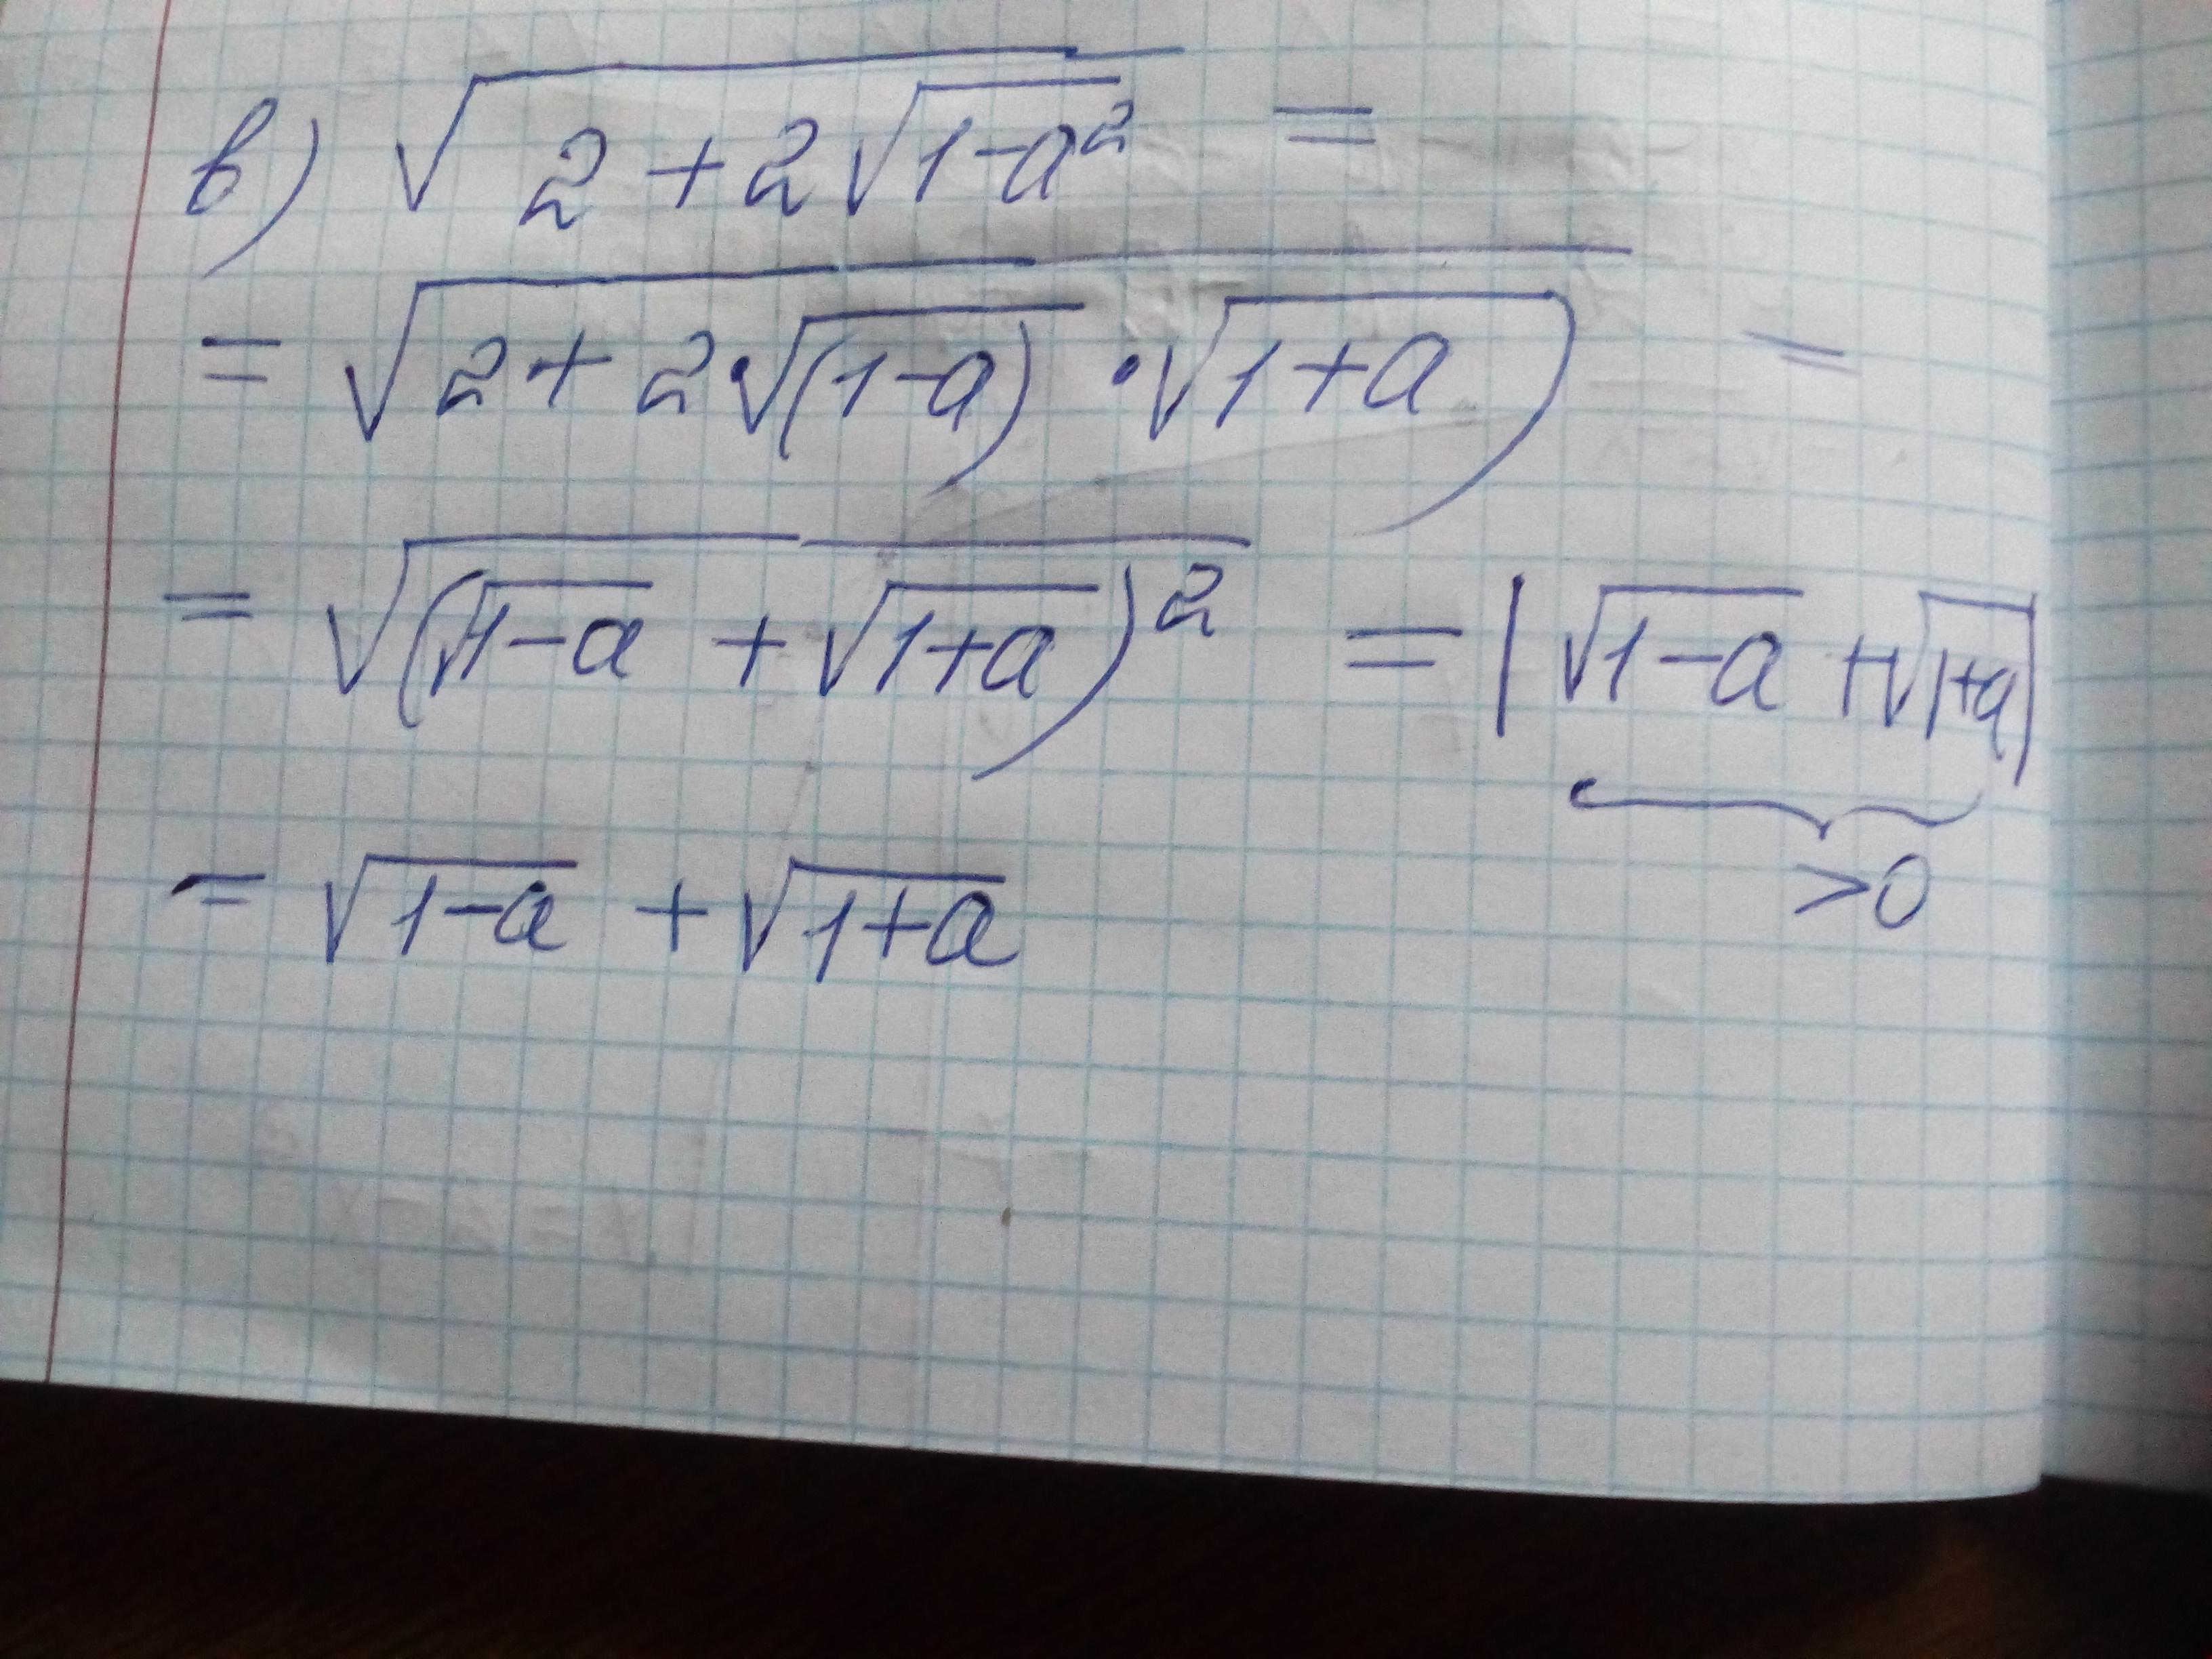 в) √(2+2√(1-a²)) =
= √(2+2·√((1-a))·√(1+a)) =
= √((√(1-a) + √(1+a))²) = |√(1-a) + √(1+a)|
>0
= √(1-a) + √(1+a)